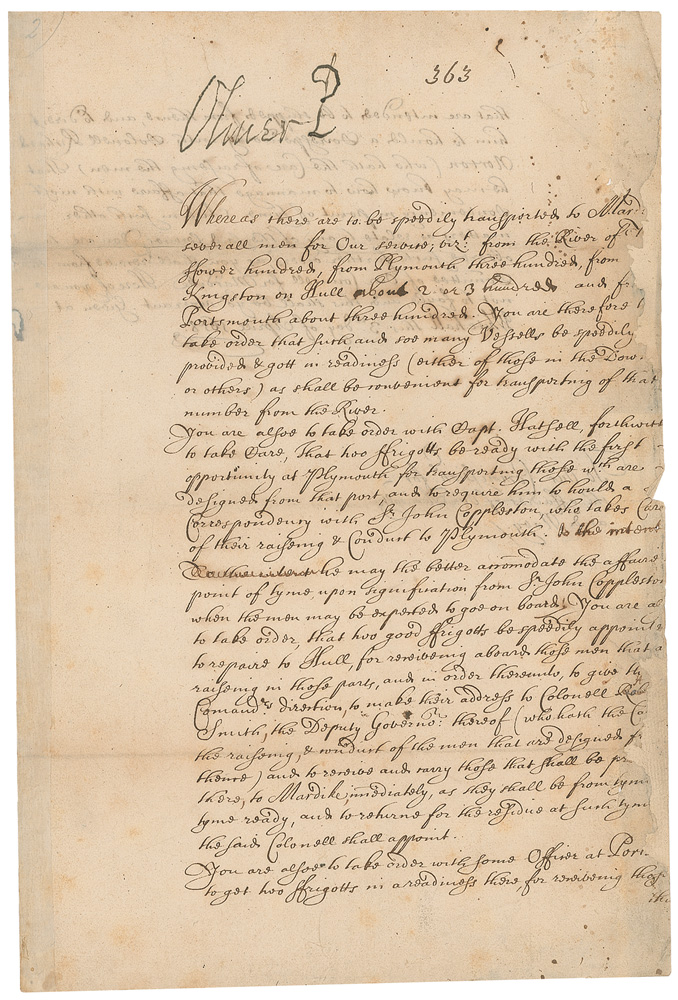 2
363
Oliver P
Whereas there are to be speedily transported to Mard
severall men for Our service; vizt: from the River of
ffower hundred, from Plymouth three hundred, from
Kingston on Hull about 2 or 3 hundred and fr
Portsmouth about three hundred. You are therefore t
take order that such and soe many Vessells be speedily
provided & gott in readiness (either of those in the Dow
or others) as shall be convenient for transporting of that
number from the River.
You are alsoe to take order with Capt. Hatsell, forthwith
to take Care, That two ffrigotts be ready with the first
opportunity at Plymouth for transporting those wch are
designed from that port, and to require him to hould a
Correspondency with Sr John Coppleston, who takes Care
of their raiseing & Conduct to Plymouth. to the intent
he may the better accomodate the affaire
point of tyme, upon signification from Sr John Copplesto
when the men may be expected to goe on board. You are al
to take order, that two good ffrigotts be speedily appoint
to repaire to Hull, for receiveing aboard those men that a
raiseing in those parts, and in order thereunto, to give th
Comandrs direction, to make their address to Colonell Rob
Smith, the Deputy Governor: thereof (who hath the Ca
the raiseing, & conduct of the men that are designed fr
thence) and to receive and carry those that shall be pr
there, to Mardike, imediately, as they shall be from tyme
tyme ready, and to returne for the residue at such tym
the said Colonell shall appoint.
You are alsoe to take order with some Officer at Ports
to get two ffrigotts in a readiness there, for receiveing those